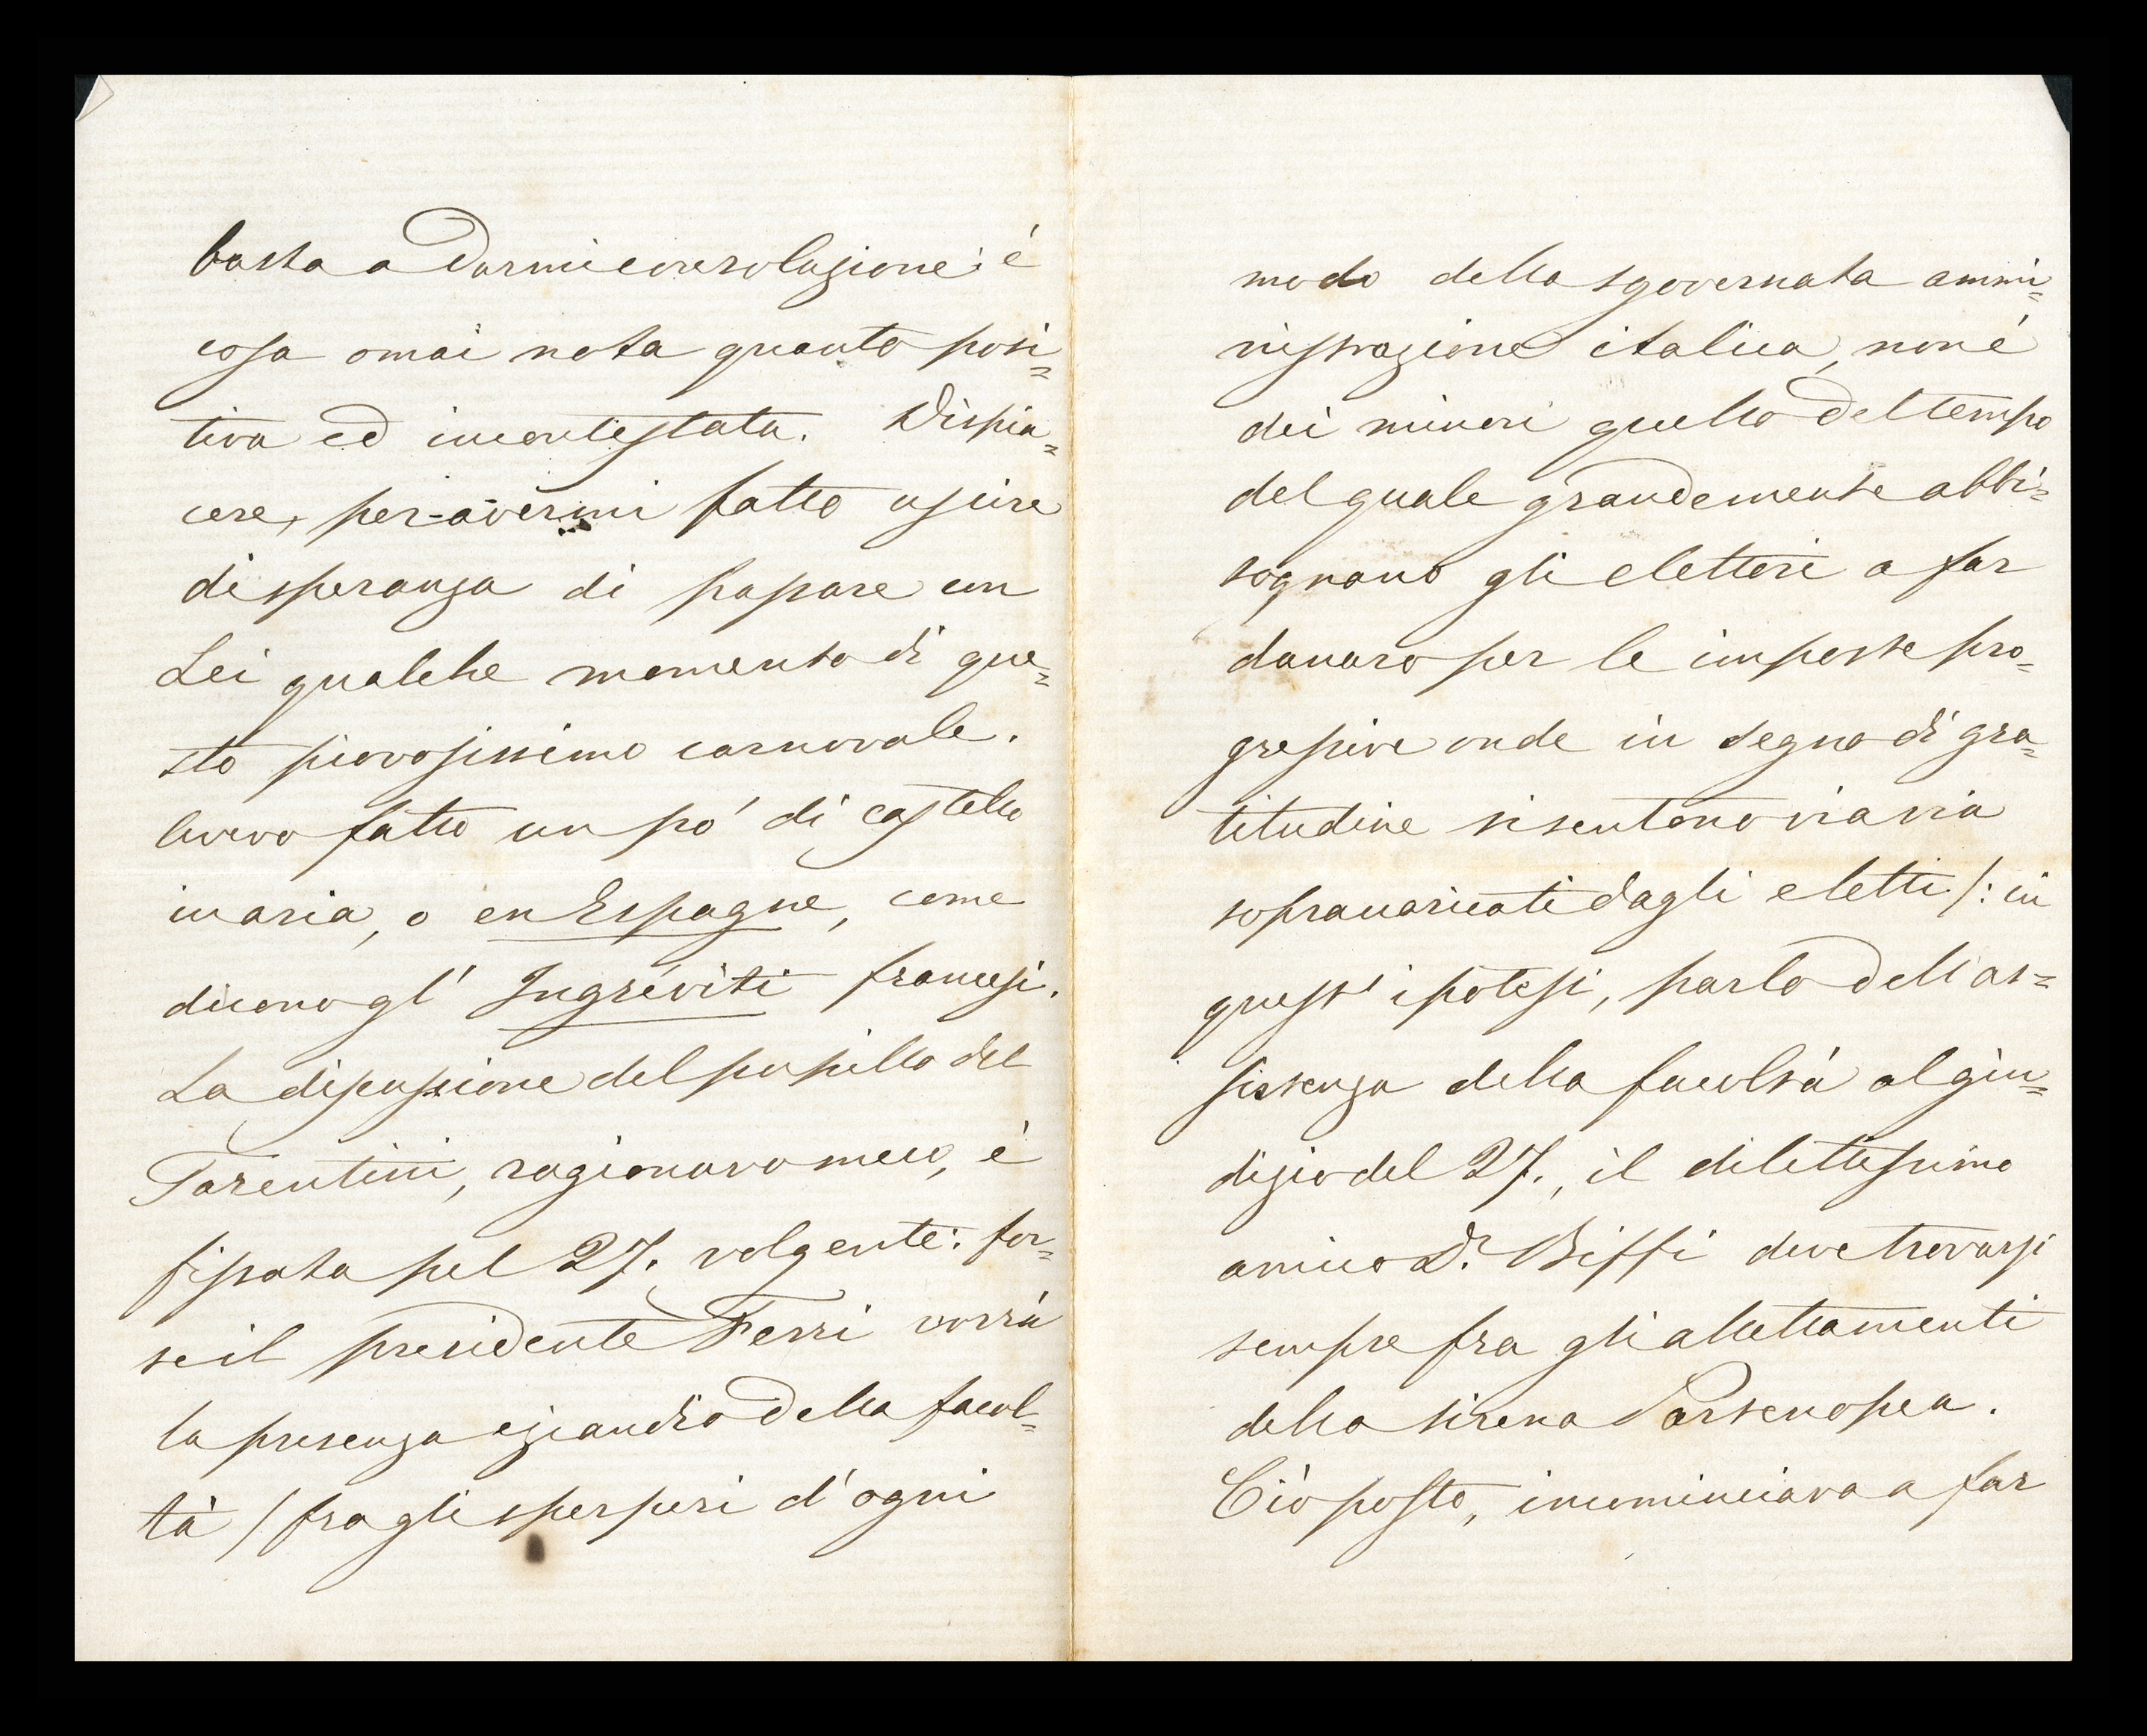 basta a darmi consolazione: è
cosa omai nota quanto posi=
tiva ed incontestata. Dispia=
cere, per avermi fatto uscire
di speranza di passare con
Lei qualche momento di que=
sto piovosissimo carnovale.
Avevo fatto un pò di castello
in aria, o en Espagne, come
dicono gl' Ingréviti francesi.
La discussione del pupillo del
Tarentini, ragionavo meco, è
fissata pel 27. volgente: for=
se il presidente Ferri vorrà
la presenza eziandio della facol=
tà /fra gli sperperi d'ogni
modo della sgovernata ammi=
nistrazione italica, non è
dei minori quello del tempo
del quale grandemente abbi=
sognano gli elettori a far
danaro per le imposte pro=
gressive onde in segno di gra=
titudine si sentono via via
sopracaricati dagli eletti/: in
quest' ipotesi, parlo dell'as=
sistenza della facoltà al giu=
dizio del 27., il dilettissimo
amico Dr. Biffi deve trovarsi
sempre fra gli allettamenti
della sirena Partenopea.
Ciò posto, incominciava a far